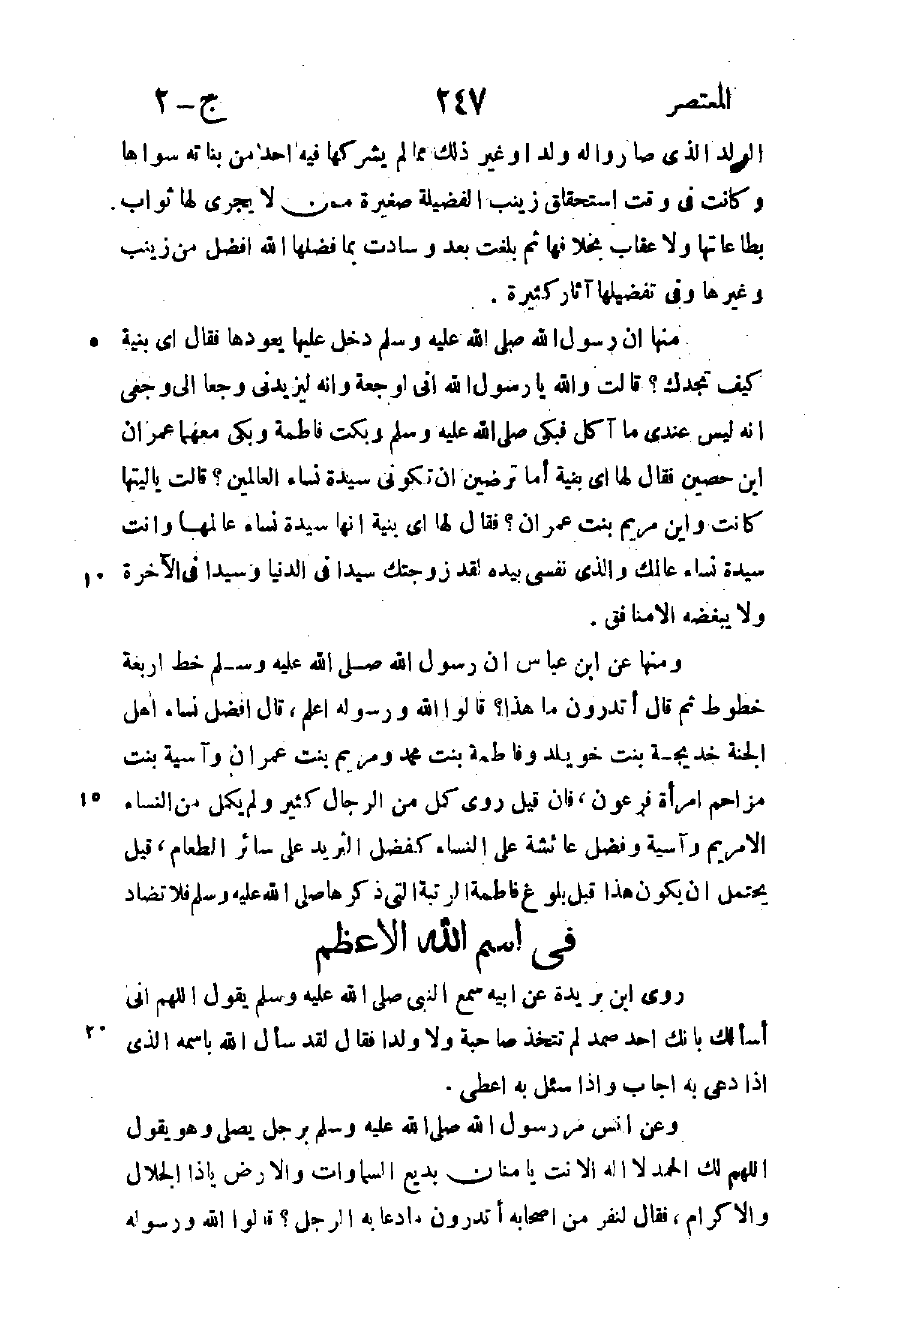 المعتصر ٢٤٧ ج – ٢
الولد الذى صاروا له ولدا وغير ذلك مما لم يشركها فيه احد من بناته سواها
وكانت فى وقت استحقاق زينب الفضيلة صغيرة ممن لا يجرى لها ثواب.
بطاعاتها ولا عقاب بخلافها ثم بلغت بعد وسادت بما فضلها الله افضل من زينب
وغيرها وفى تفضيلها آثار كثيرة .
منها ان رسول الله صلى الله عليه وسلم دخل عليها يعودها فقال اى بنية ٥
كيف تجدك ؟ قالت والله يا رسول الله انى اوجعة وانه ليزيدنى وجعا الى وجعى
انه ليس عندى ما آكل فبكى صلى الله عليه وسلم وبكت فاطمة وبكى معهما عمران
ابن حصين فقال لها اى بنية أما ترضين ان تكونى سيدة نساء العالمين ؟ قالت ياليتها
كانت واين مريم بنت عمران ؟ فقال لها اى بنية انها سيدة نساء عالمها وانت
سيدة نساء عالمك والذى نفسى بيده لقد زوجتك سيدا فى الدنيا وسيدا فى الآخرة ١٠
ولا يبغضه الا منافق .
ومنها عن ابن عباس ان رسول الله صلى الله عليه وسلم خط اربعة
خطوط ثم قال أتدرون ما هذا؟ قالوا الله ورسوله اعلم، قال افضل نساء اهل
الجنة خديجة بنت خويلد وفاطمة بنت محمد ومريم بنت عمران وآسية بنت
مزاحم امرأة فرعون، فان قيل روى كمل من الرجال كثير ولم يكمل من النساء ١٥
الا مريم وآسية وفضل عائشة على النساء كفضل الثريد على سائر الطعام، قيل
يحتمل ان يكون هذا قبل بلوغ فاطمة الرتبة التى ذكرها صلى الله عليه وسلم فلا تضاد
فى اسم الله الاعظم
روى ابن بريدة عن ابيه سمع النبى صلى الله عليه وسلم يقول اللهم انى
أسألك بانك احد صمد لم تتخذ صاحبة ولا ولدا فقال لقد سأل الله باسمه الذى ٢٠
اذا دعى به اجاب واذا سئل به اعطى .
وعن انس مر رسول الله صلى الله عليه وسلم برجل يصلى وهو يقول
اللهم لك الحمد لا اله الا انت يا منان بديع السماوات والارض ياذا الجلال
والاكرام، فقال لنفر من اصحابه أتدرون مادعا به الرجل ؟ قالوا الله ورسوله